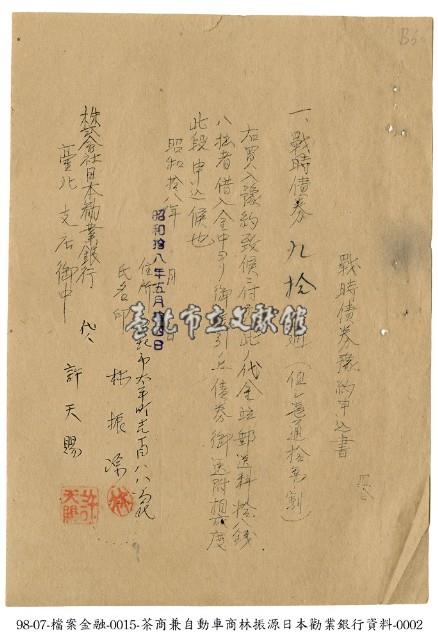 戰時債券豫約申込書
一、戰時債券 九拾
右買入豫約致候ニ付此ノ代金並郵送料拾八錢
八拙者借入金中ヨリ御引
債券御送附相成度
此段申込候也
昭和拾八年 月 日
昭和拾八年五月 日
住所 北市太平町
氏名印 林振源
株式会社日本勧業銀行
臺北支店御中
代 許天賜
許天賜
臺北市立文獻館
98-07-檔案金融-0015-茶商兼自動車商林振源日本勸業銀行資料-0002